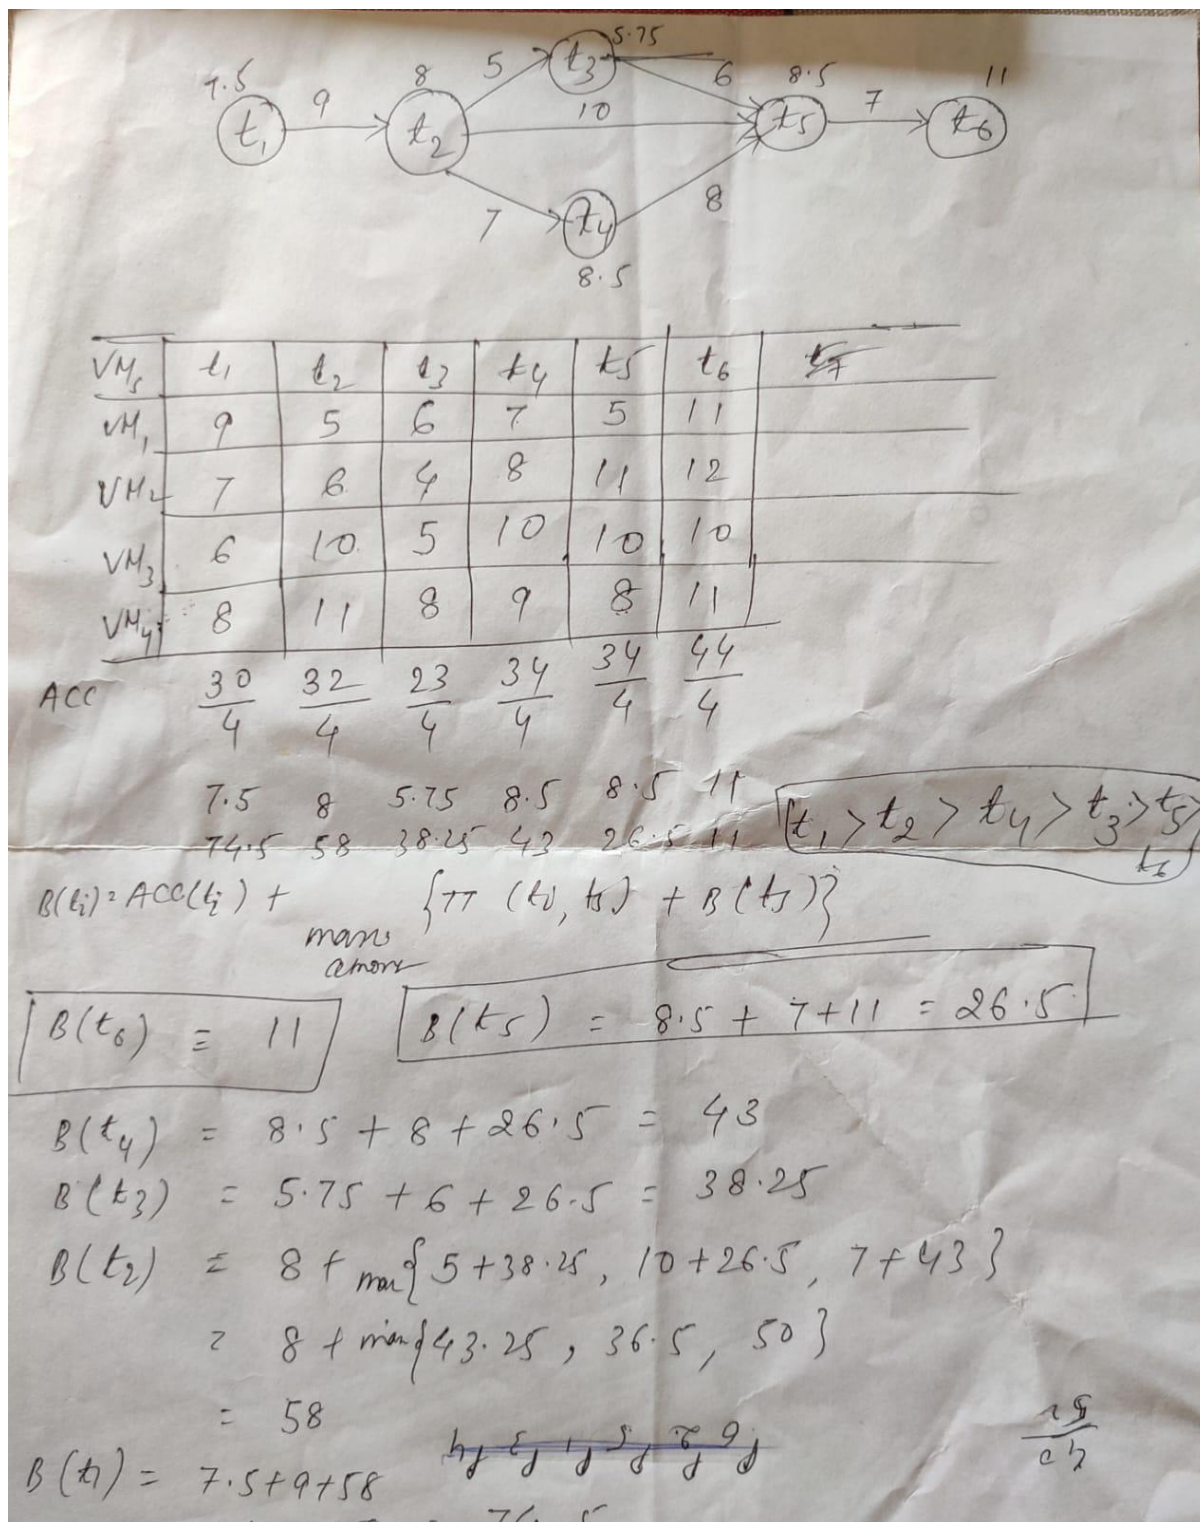 5.75
7.5 9 8 5 t3 6 8.5 7 11
t1 t2 10 t5 t6
7 t4 8
8.5
VMs t1 t2 t3 t4 t5 t6
VM1 9 5 6 7 5 11
VM2 7 6 4 8 11 12
VM3 6 10 5 10 10 10
VM4 8 11 8 9 8 11
ACC 30/4 32/4 23/4 34/4 34/4 44/4
7.5 8 5.75 8.5 8.5 11
74.5 58 38.25 43 26.5 11
t1 > t2 > t4 > t3 > t5 >
t6
B(ti) = ACC(ti) + {TT (ti, tj) + B(tj)}
B(t6) = 11
B(t5) = 8.5 + 7 + 11 = 26.5
B(t4) = 8.5 + 8 + 26.5 = 43
B(t3) = 5.75 + 6 + 26.5 = 38.25
B(t2) = 8 + max{5+38.25, 10+26.5, 7+43}
= 8 + max{43.25, 36.5, 50}
= 58
B(t1) = 7.5+9+58